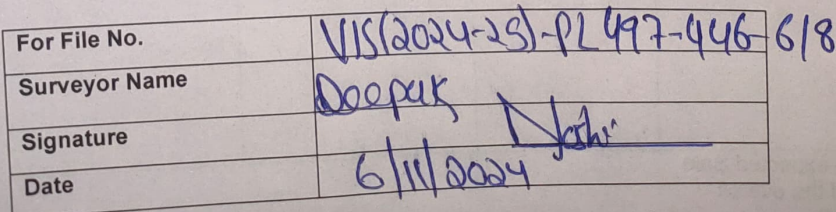 For File No. VIS(2024-25)-PL497-446-618
Surveyor Name Deepak
Signature Joshi
Date 6/11/2024